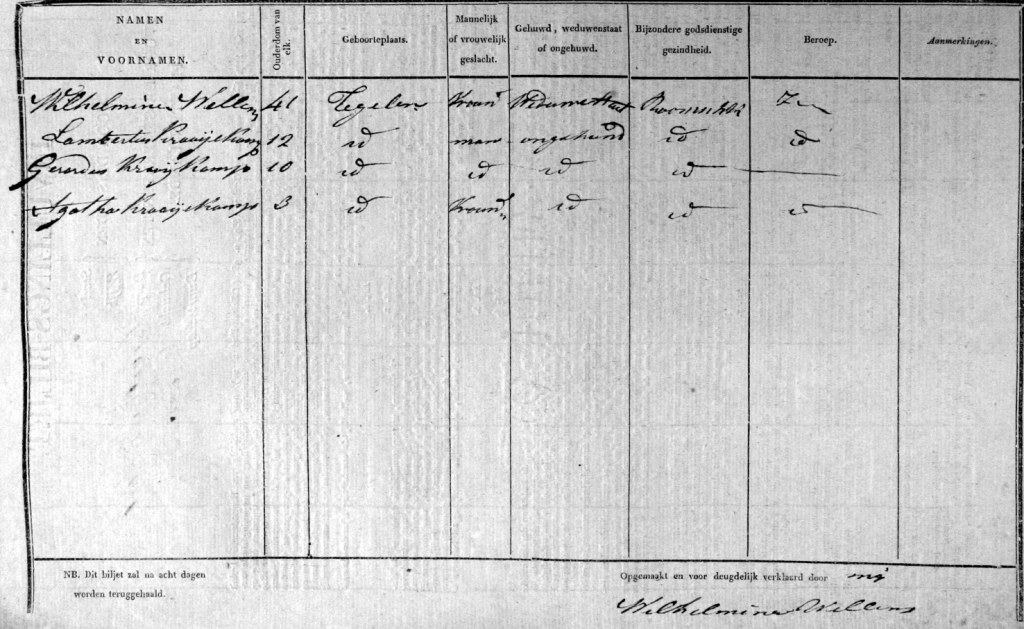 NAMEN EN VOORNAMEN. Ouderdom van elk. Geboorteplaats. Mannelijk of vrouwelijk geslacht. Gehuwd, weduwenstaat of ongehuwd. Bijzondere godsdienstige gezindheid. Beroep. Aanmerkingen.
Wilhelmina Wellens 41 Tegelen
Lambertus Kraaijekamp 12 id man ongehuwd id id
Gerardus Kraijkamp 10 id id id id
Agatha Kraaijekamp 3 id id id id
NB. Dit biljet zal na acht dagen worden teruggehaald.
Opgemaakt en voor deugdelijk verklaard door mij
Wilhelmina Wellens